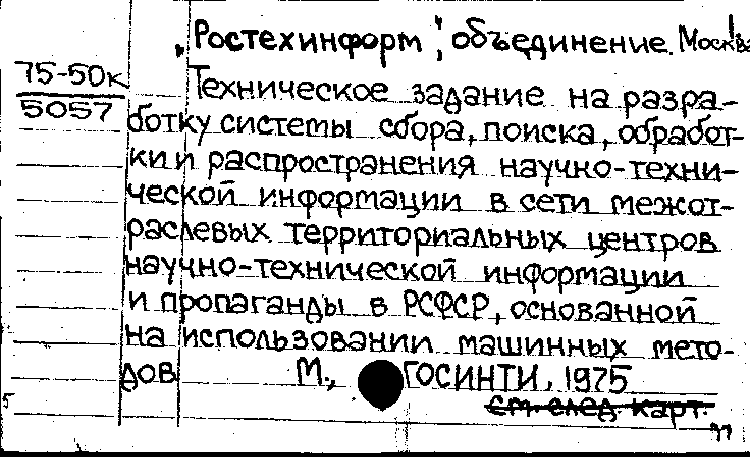 „Ростехинформ", объединение. Москва
75-50к
5057
Техническое задание на разра-
ботку системы сбора, поиска, обработ-
ки и распространения научно-техни-
ческой информации в сети межот-
раслевых территориальных центров
научно-технической информации
и пропаганды в РСФСР, основанной
на использовании машинных мето-
дов М., ГОСИНТИ, 1975
см. след. карт.